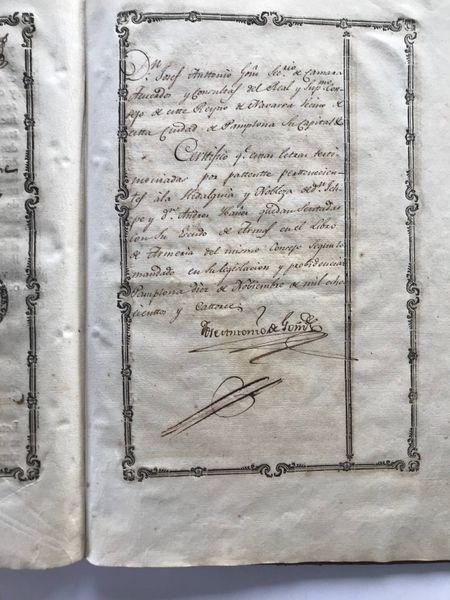 Dn. Josef Antonio Goñi Sec.rio de Camara
Acuerdos y Consultas del Real y Sup.mo Con-
sejo de este Reyno de Navarra vecino de
esta Ciudad de Pamplona su Capital &
Certifico q.e estas letras testi-
moniadas por patente pertenecien-
tes ala Hidalguia y Nobleza de dn. Feli-
pe y dn. Andres quedan sentadas
con su Escudo de Armas en el Libro
de Armeria del mismo Consejo segun lo
mandado en su legislacion y probidencias
Pamplona diez de Noviembre de mil ocho-
cientos y Catorce
Josef Antonio de Goñi